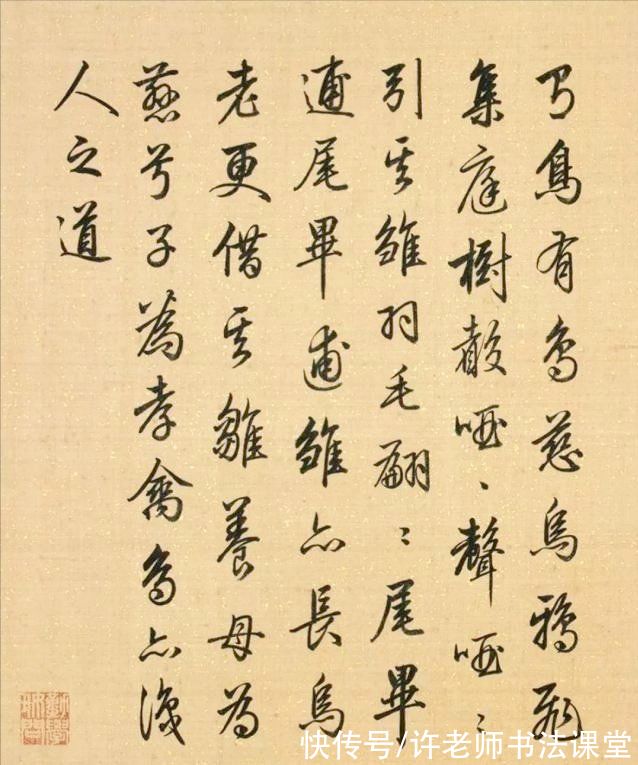 有鳥有鳥慈烏鴉飛
集庭樹聲啞々聲啞々
引其雛羽毛翩々尾畢
逋尾畢逋雛亦長烏
老更借其雛養母為
慈兮子為孝禽鳥亦識
人之道
快传号/许老师书法课堂